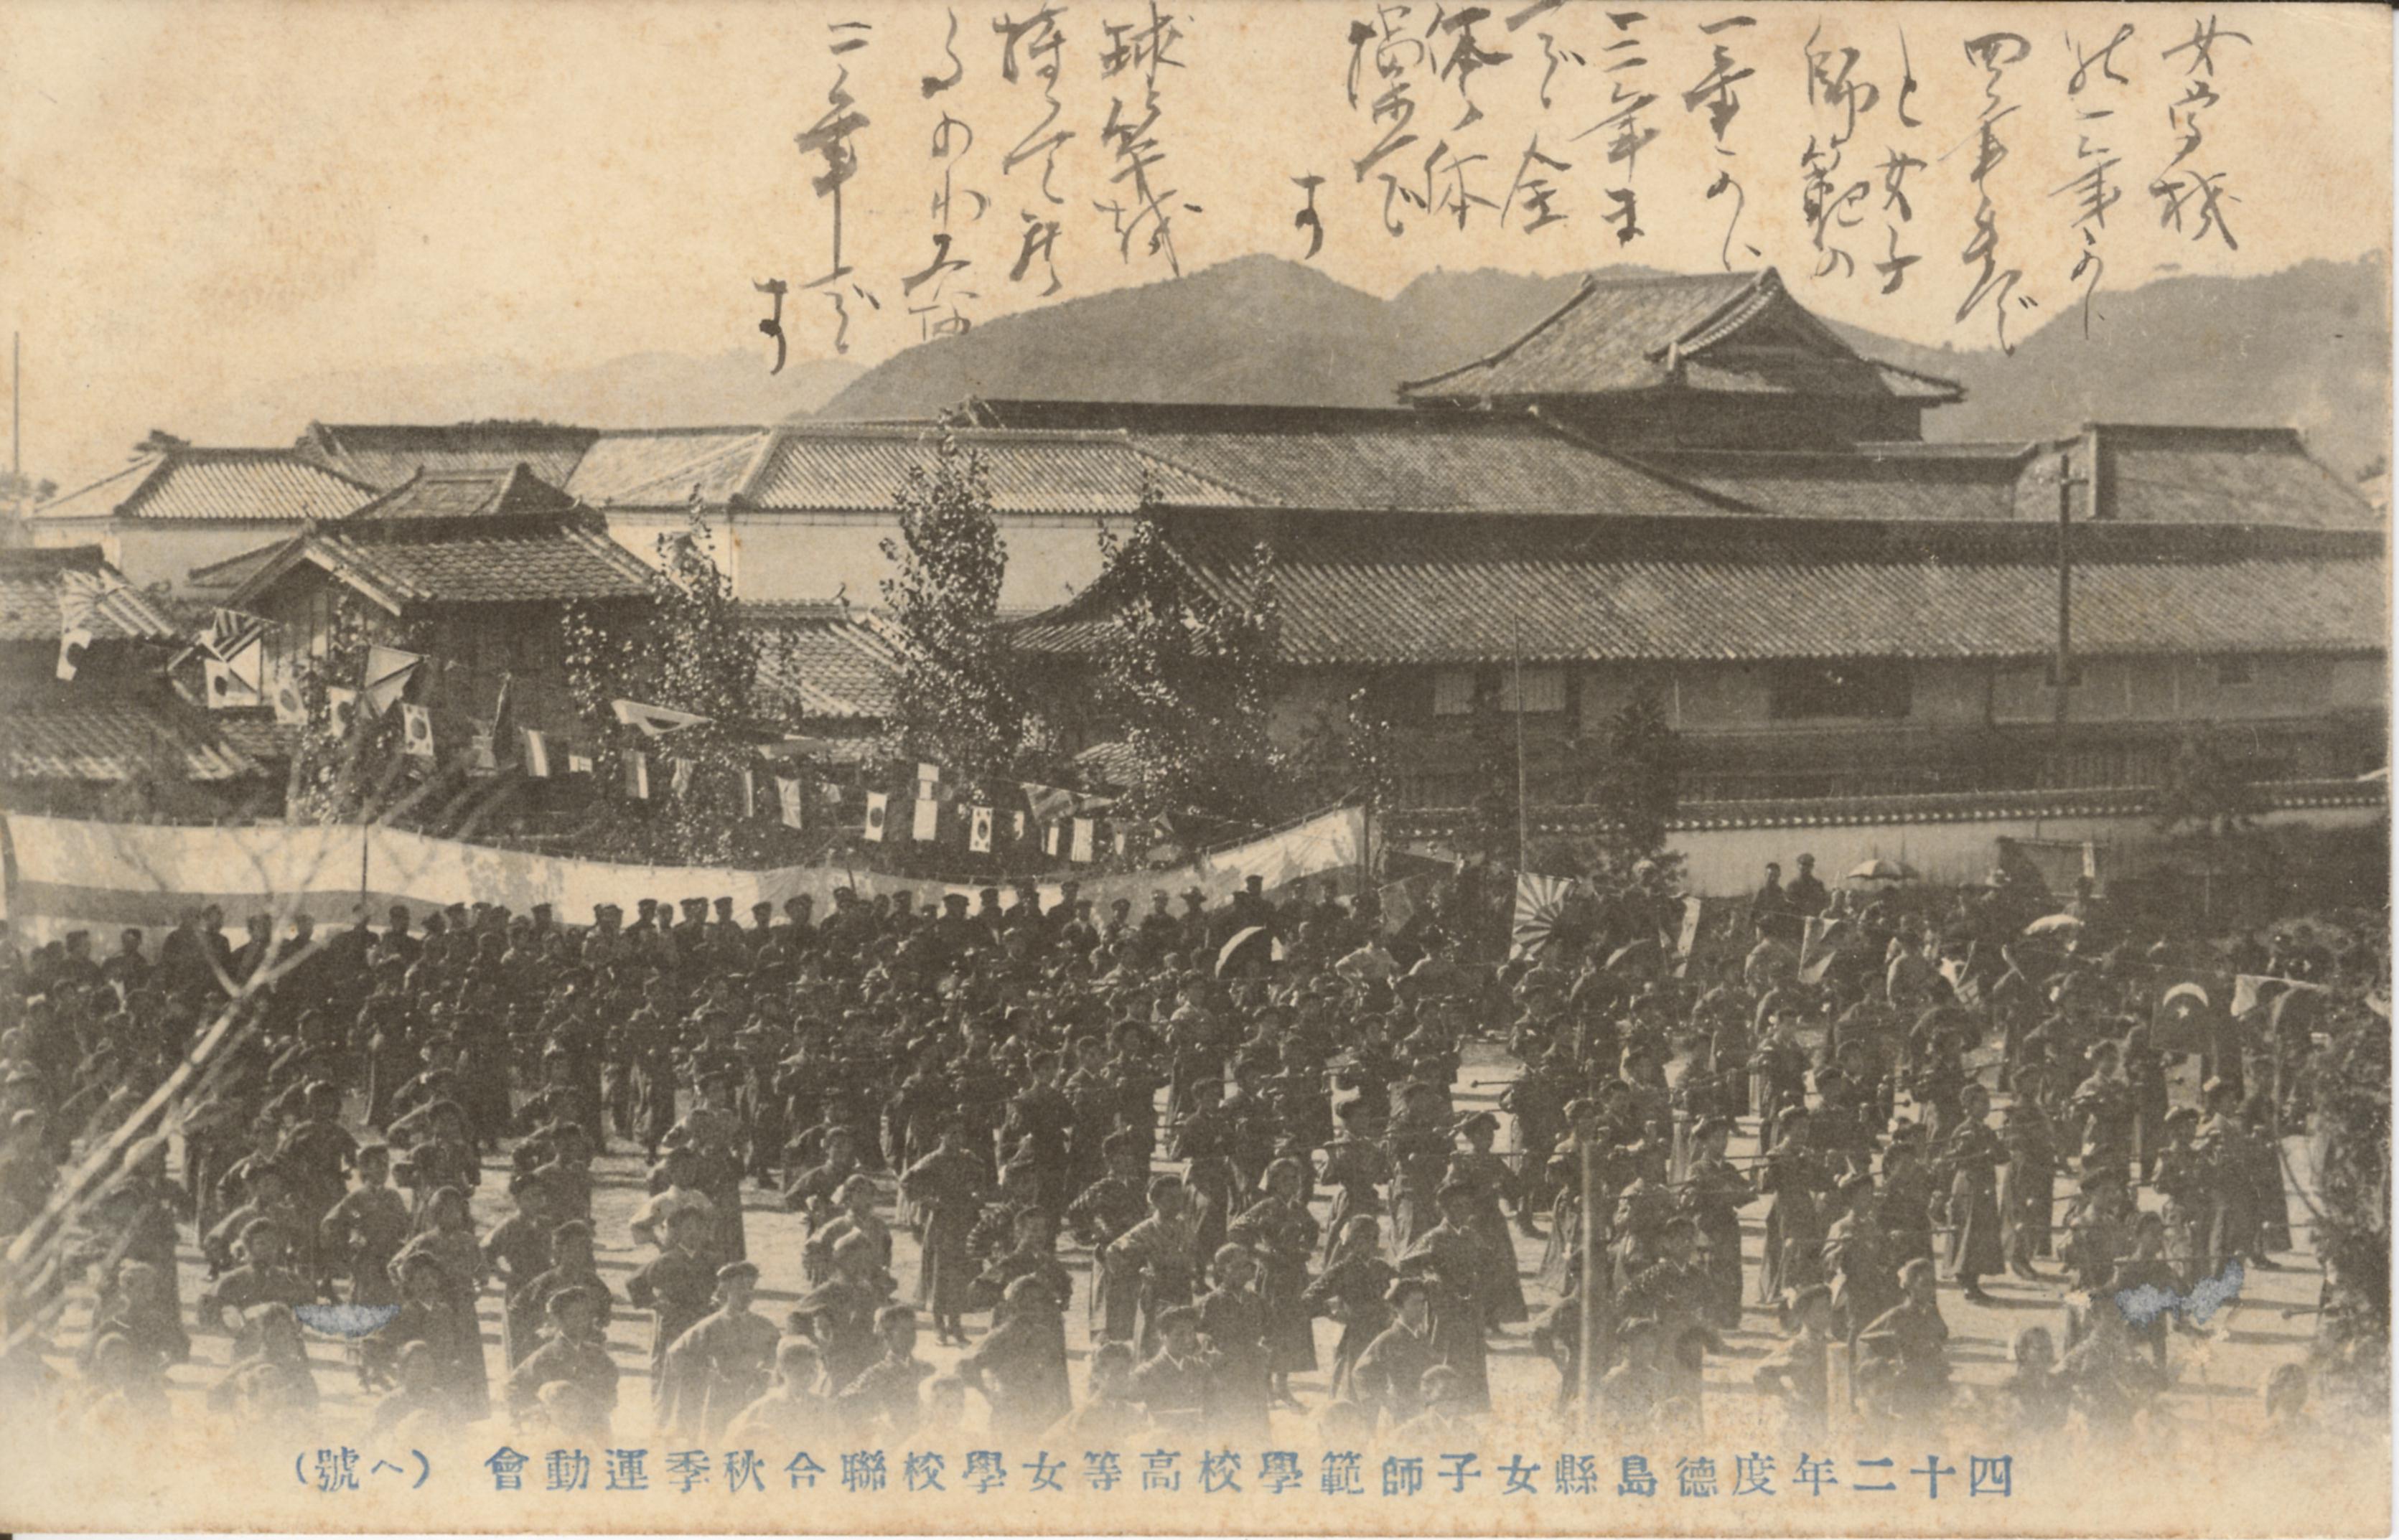 女学校
の一年から
四年まで
と女子
師範の
一年から
三年ま
で全
体の体
操で
す
球竿を
持って居
るのが
二年で
す
四十二年度德島縣女子師範學校高等女學校聯合秋季運動會 (ヘ號)